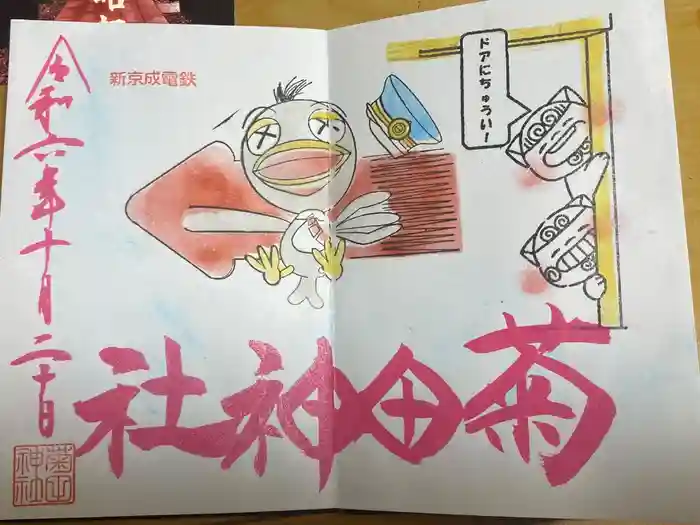 ドアにちゅうい!
新京成電鉄
菊田神社
令和六年十月二十日
菊田
神社